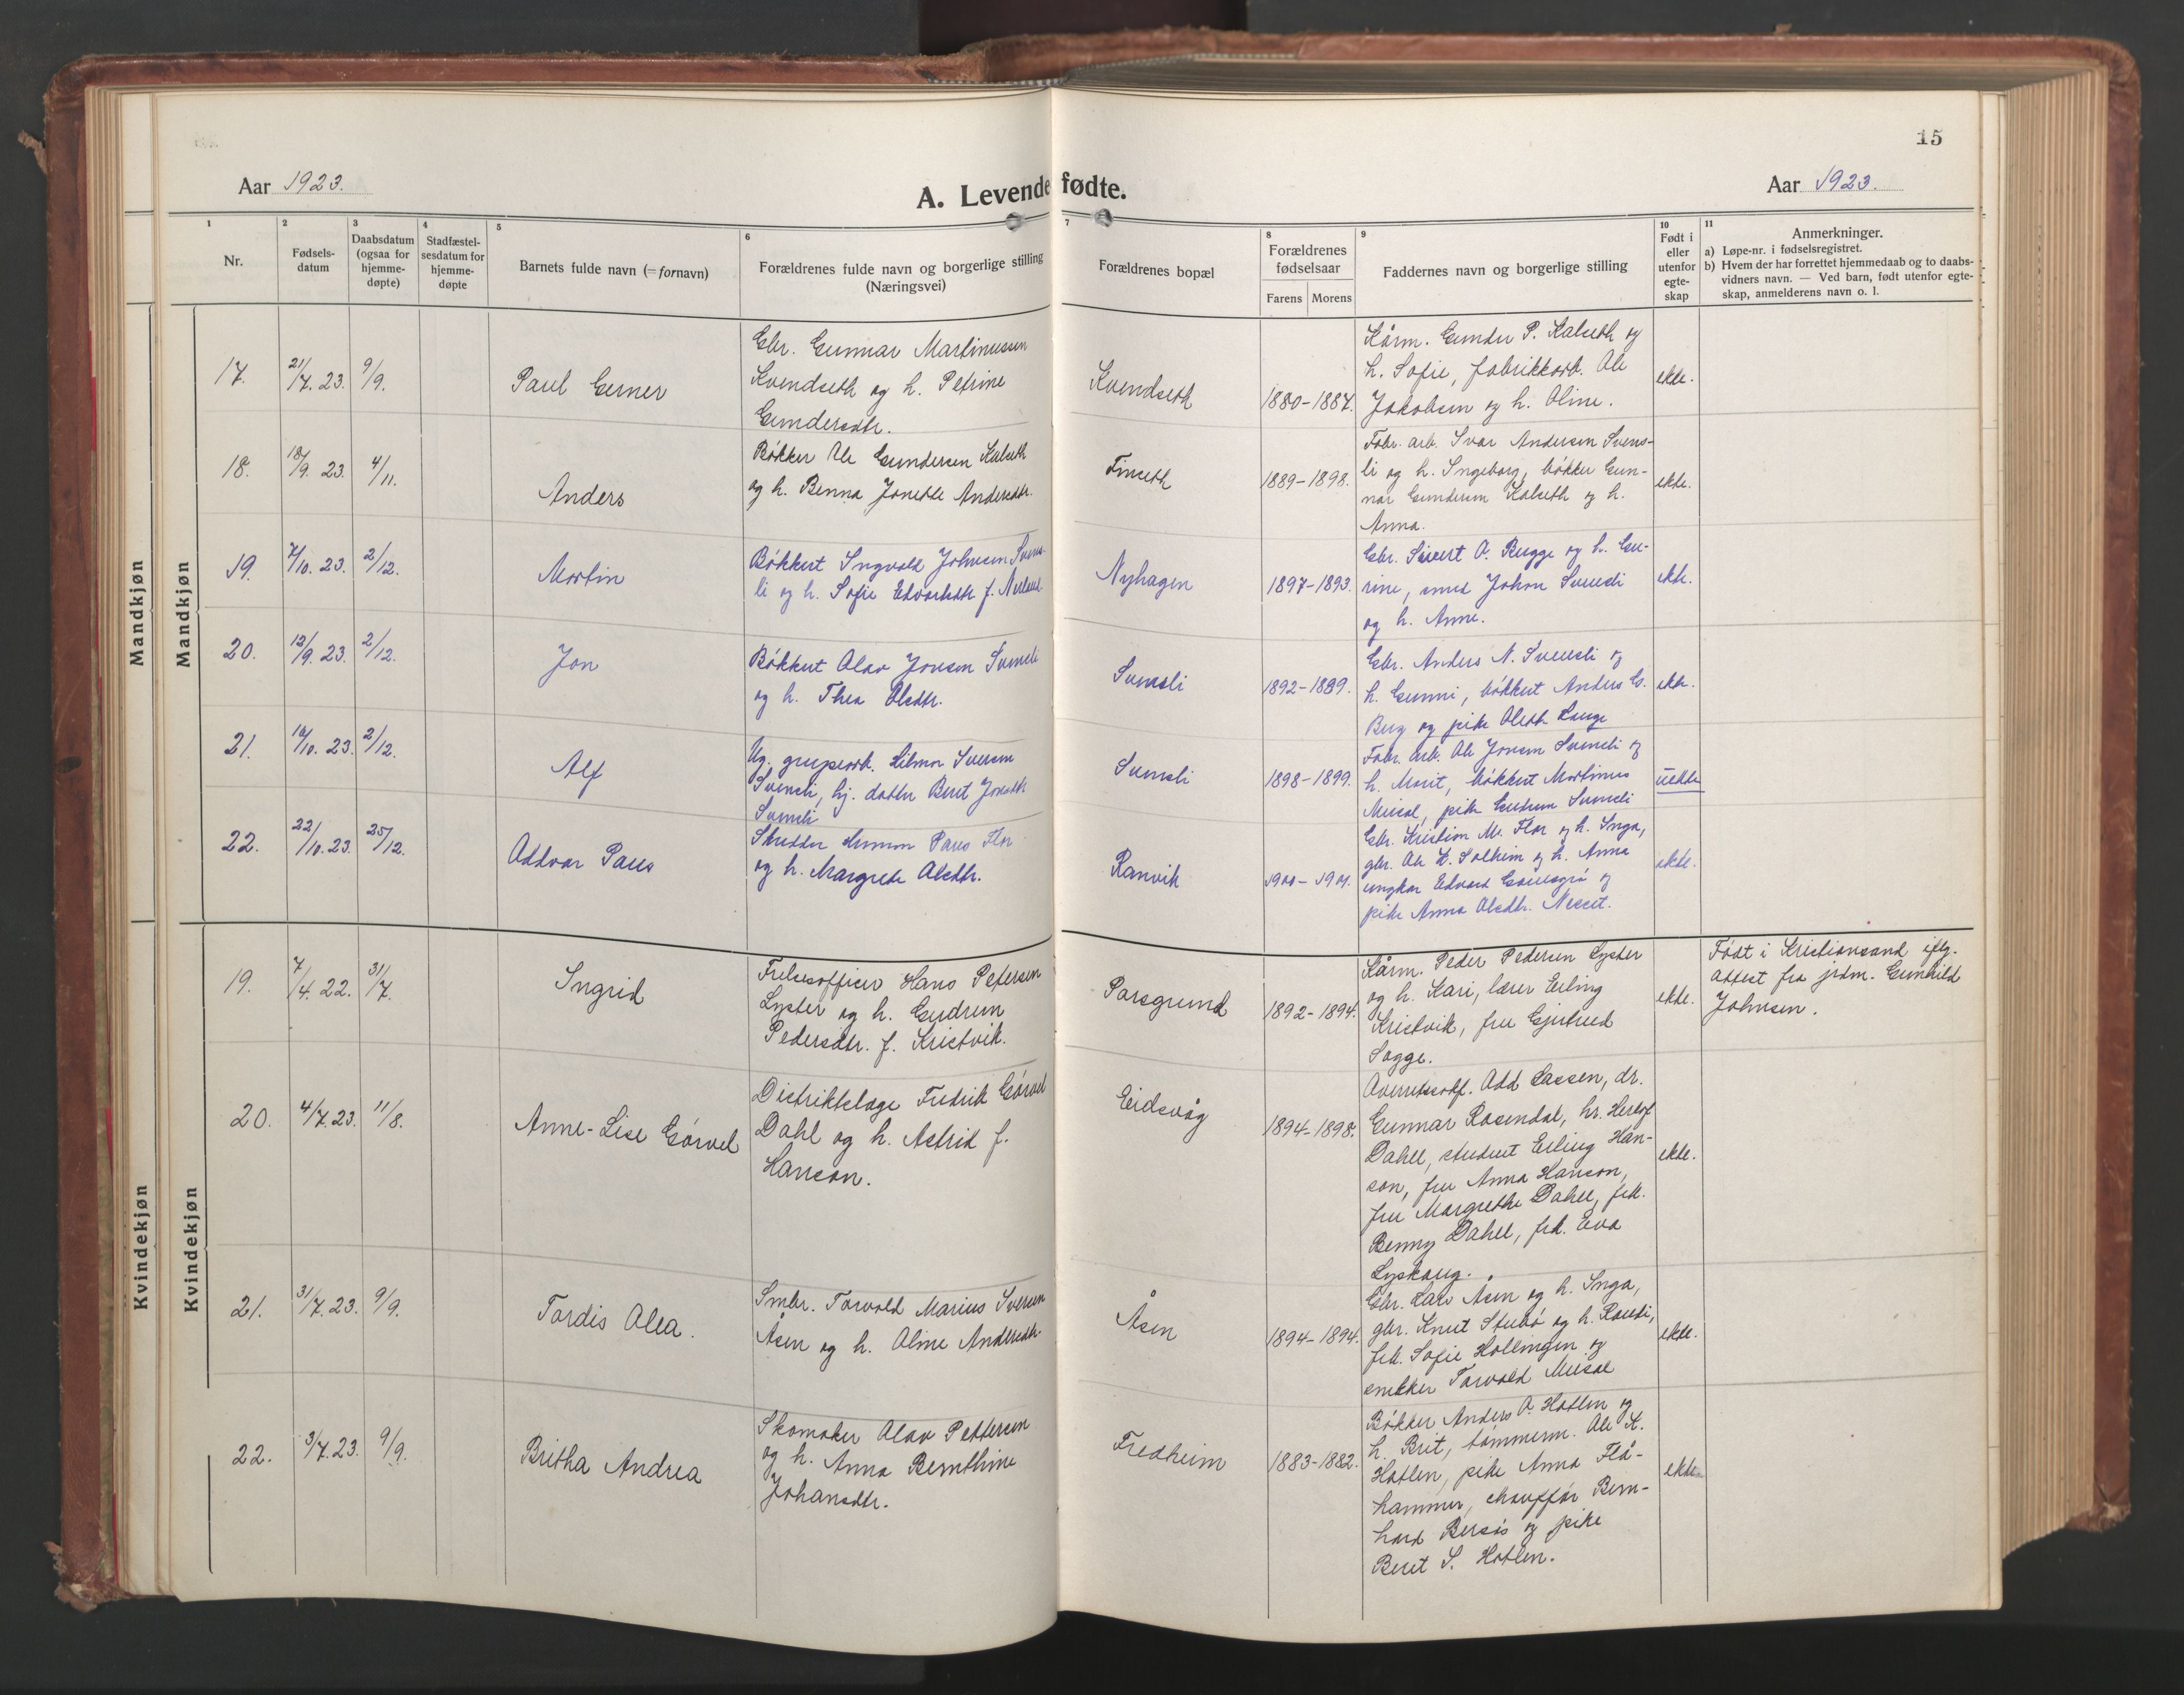 15
Aar 1923.
A. Levendefødte.
Aar 1923.
1 2 3 4 5 6 7 8 9 10 11
Nr.
Fødsels-
datum
Daabsdatum
(ogsaa for
hjemme-
døpte)
Stadfæstel-
sesdatum for
hjemme-
døpte
Barnets fulde navn (= fornavn)
Forældrenes fulde navn og borgerlige stilling
(Næringsvei)
Forældrenes bopæl
Forældrenes
fødselsaar
Farens Morens
Faddernes navn og borgerlige stilling
Født i
eller
utenfor
egte-
skap
Anmerkninger.
a) Løpe-nr. i fødselsregistret.
b) Hvem der har forrettet hjemmedaab og to daabs-
vidners navn. — Ved barn, født utenfor egte-
skap, anmelderens navn o. l.
Mandkjøn
Mandkjøn
17. 21/7. 23. 9/9. Paul Gerner
Gbr. Gunnar Martinussen
Kvendseth og h. Petrine
Gundersdtr.
Kvendseth
1880-1887.
Kårm. Gunder P. Kalseth og
h. Sofie, fabrikkarb. Ole
Jakobsen og h. Oline.
ekte.
18. 18/9. 23. 4/11. Anders
Bøkker Ole Gundersen Kalseth
og h. Benna Jonette Andersdtr.
Tinseth
1889-1898.
Fabr. arb. Ivar Andersen Svens-
li og h. Ingeborg, bøkker Gun-
nar Gundersen Kalseth og h.
Anna.
ekte.
19. 7/10. 23. 2/12. Martin
Bøkkert Ingvald Johnsen Svens-
li og h. Sofie Edvardsdtr. f.
Nyhagen
1897-1893.
Gbr. Sivert O. Bugge og h. Gu-
rine, smed Johan Svensli
og h. Anne.
ekte.
20. 12/9. 23. 2/12. Jon
Bøkkert Olav Jonsen Svensli
og h. Thea Olsdtr.
Svensli
1892-1899.
Gbr. Anders N. Svensli og
h. Gunni, bøkkert Anders G.
Berg og pike Oleth Lange
ekte.
21. 16/10. 23. 2/12. Alf
Ug. grupearb. Hilmar Iversen
Svensli, hj. datter Beret Jonsdtr.
Svensli
Svensli
1898-1899.
Fabr. arb. Ole Jonsen Svensli og
h. Marit, bøkkert Martinus
Meisal, pike Gudrun Svensli
uekte
22. 22/10. 23. 25/12. Oddvar Paus
Skredder Paus Flor
og h. Margrete Olsdtr.
Ranvik
1900-1901.
Gbr. Kristian M. Flor og h. Inga,
gbr. Ole H. Solheim og h. Anna
ungkar Edvard og
pike Anna Olsdtr. Nesset.
ekte.
Kvindekjøn
Kvindekjøn
19. 7/4. 22. 31/7. Ingrid
Frelsesofficer Hans Petersen
Lyster og h. Gudrun
Pedersdtr. f. Kristvik.
Porsgrund
1892-1894.
Kårm. Peder Pedersen Lyster
og h. Kari, lærer Erling
Kristvik, fru Gjertrud
Sogge.
ekte.
Født i Kristiansand iflg.
attest fra jrdm. Gunhild
Johnsen.
20. 4/7. 23. 11/8. Anne-Lise Görvel
Distriktslæge Fredrik Görvel
Dahl og h. Astrid f.
Hanson.
Eidsvåg
1894-1898.
Overretssakf. Odd Lassen, dr.
Gunnar Rosendal, hr. Herlof
Dahll, student Erling Han-
son, fru Anna Hanson,
fru Margrethe Dahll, frk.
Benny Dahll, frk. Eva
Lyskaug.
ekte.
21. 31/7. 23. 9/9. Tordis Olea.
Smbr. Torvald Marius Iversen
Åsen og h. Oline Andersdtr.
Åsen
1894-1894.
Gbr. Lars Åsen og h. Inga,
gbr. Knut Stubø og h. Randi,
frk. Sofie Hollingen og
snekker Torvald Meisal
ekte.
22. 3/7. 23. 9/9. Britha Andrea
Skomaker Olav Pettersen
og h. Anna Bernthine
Johansdtr.
Fredheim
1883-1882.
Bøkker Anders O. Hatlen og
h. Brit, tømmerm. Ole K.
Hatlen, pike Anna Flå-
hammer, chauffør Bern-
hard Bersås og pike
Beret S. Hatlen.
ekte.